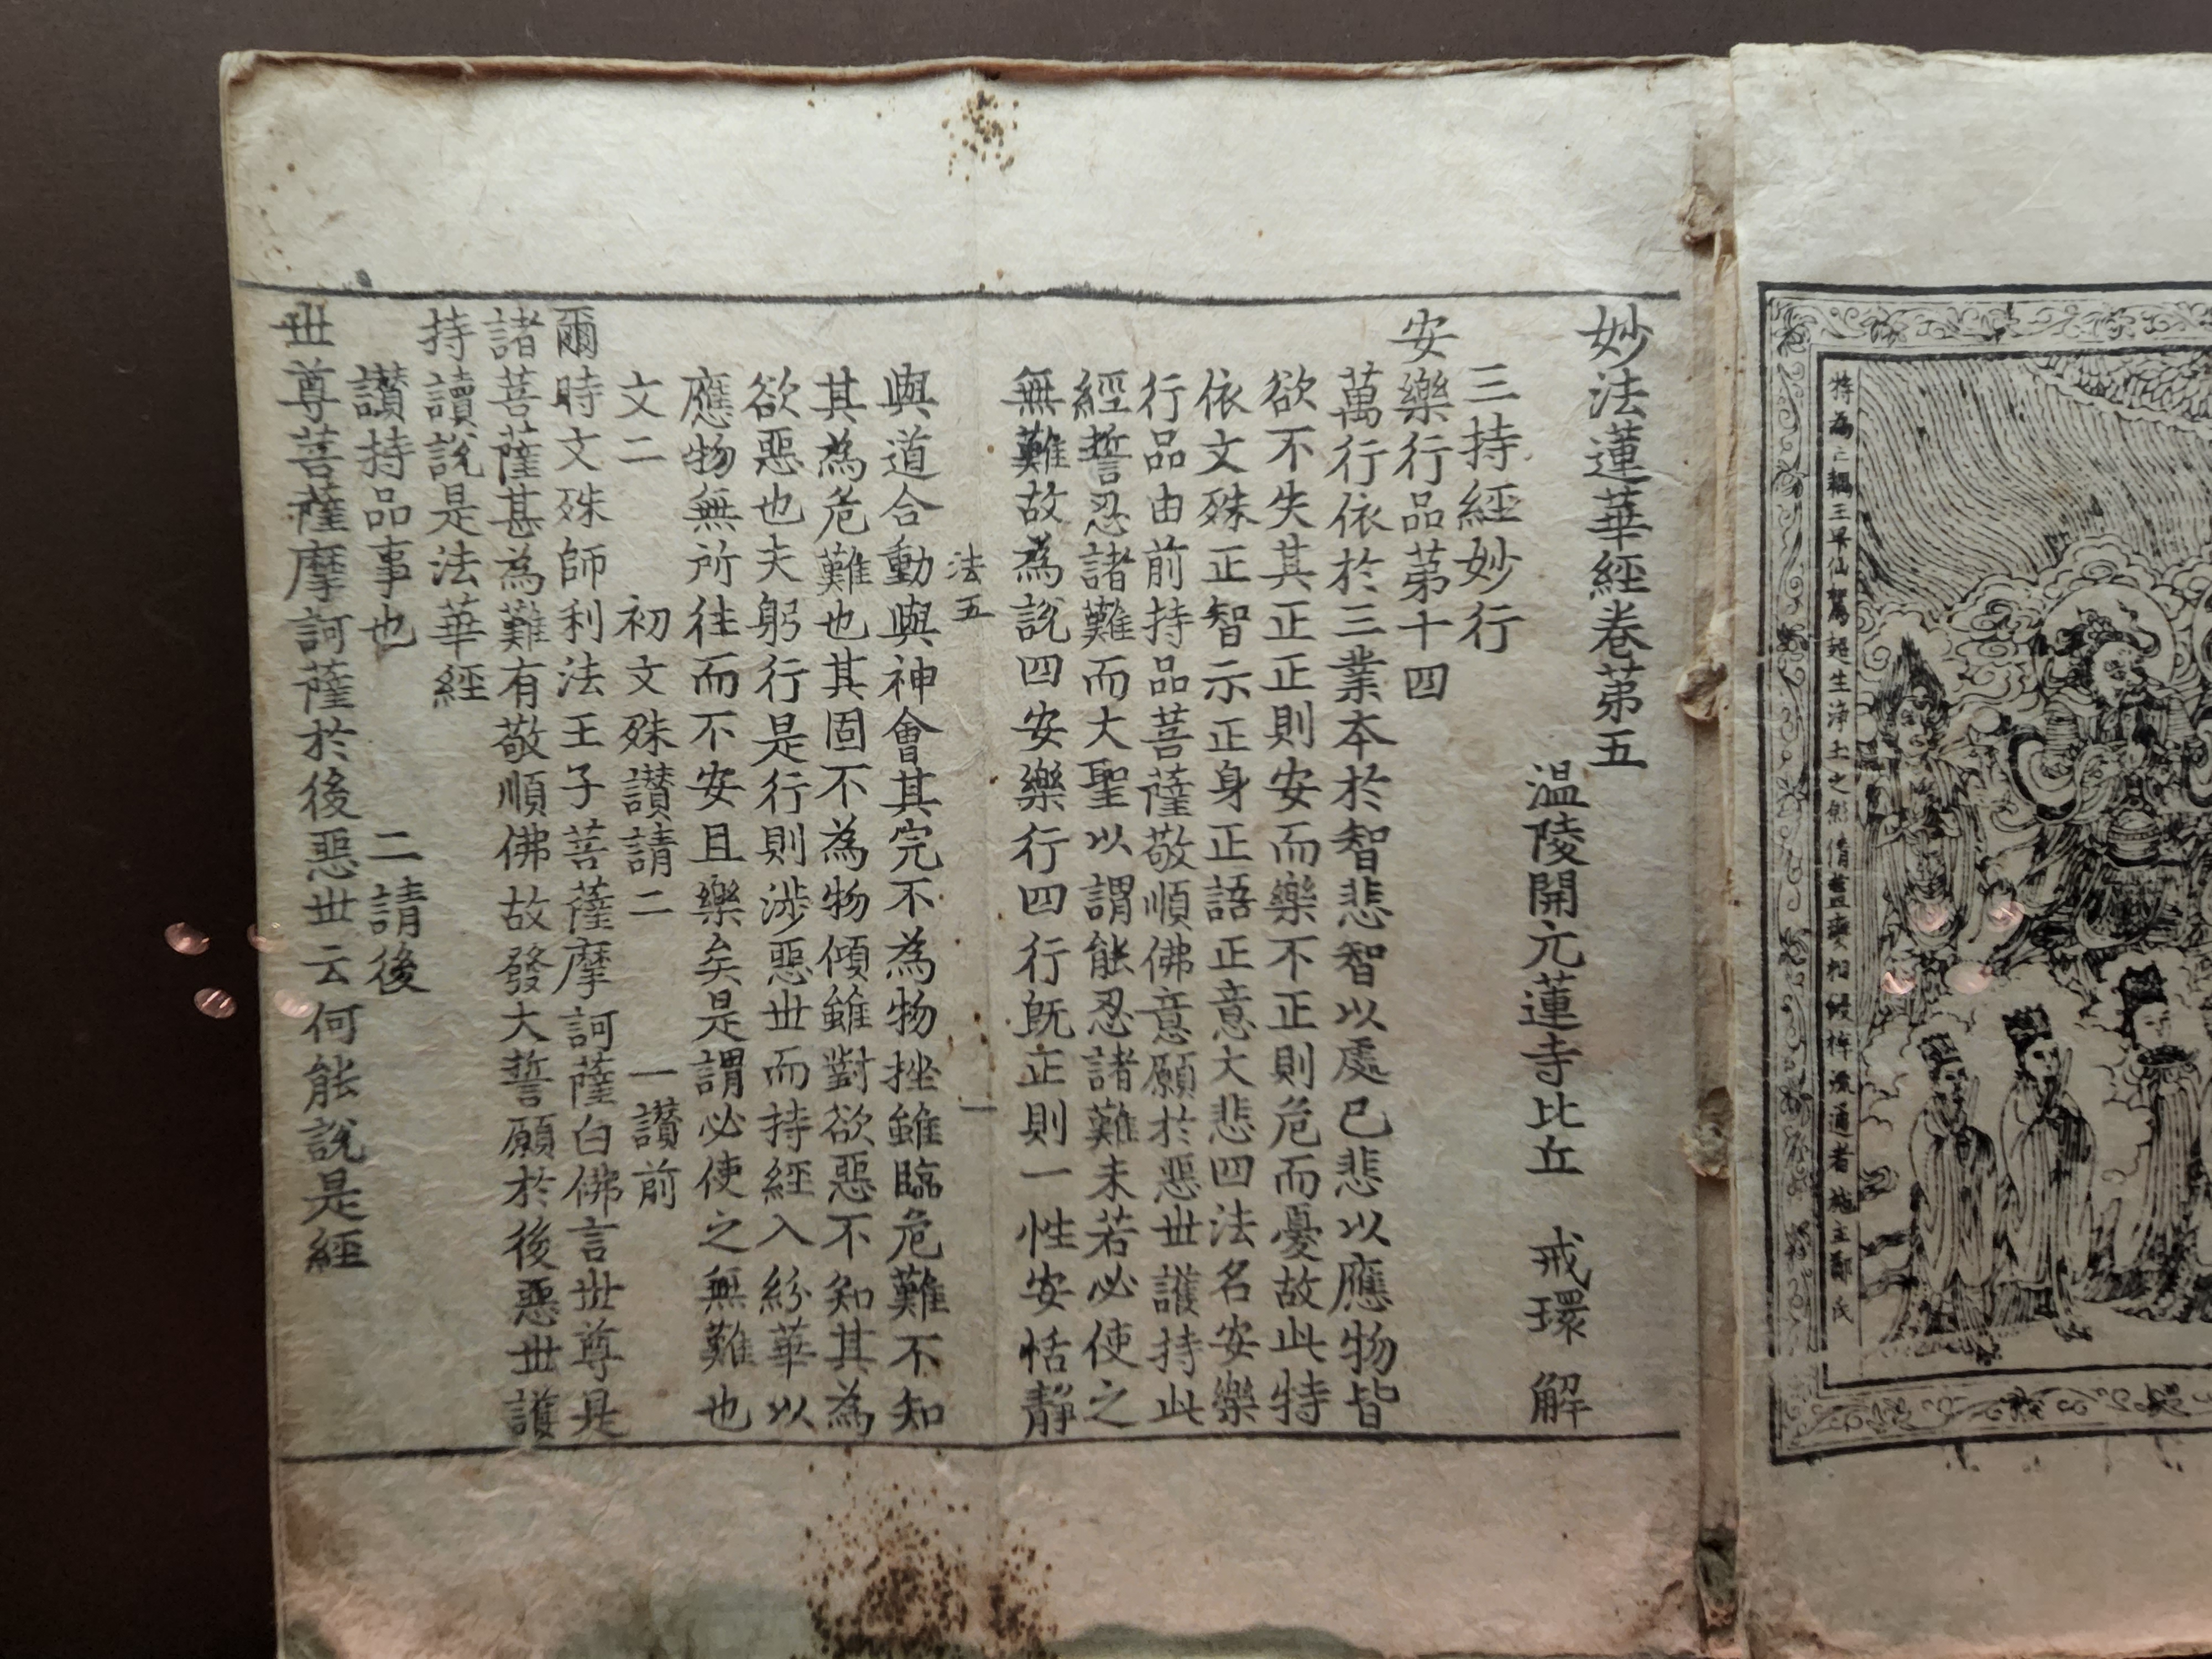 特為亡耦王 仙駕超生淨土之 相 流通者 施主鄭氏
妙法蓮華經卷苐五
温陵開元蓮寺比丘 戒環 解
三持經妙行
安樂行品苐十四
萬行依於三業本於智悲智以處已悲以應物皆
欲不失其正正則安而樂不正則危而憂故此特
依文殊正智示正身正語正意大悲四法名安樂
行品由前持品菩薩敬順佛意願於惡世護持此
經誓忍諸難而大聖以謂能忍諸難未若必使之
無難故為說四安樂行四行旣正則一性安恬靜
法五 一
與道合動與神會其完不為物挫雖臨危難不知
其為危難也其固不為物傾雖對欲惡不知其為
欲惡也夫躬行是行則涉惡世而持經入紛華以
應物無所往而不安且樂矣是謂必使之無難也
文二 初文殊讃請二 一讃前
爾時文殊師利法王子菩薩摩訶薩白佛言世尊是
諸菩薩甚為難有敬順佛故發大誓願於後惡世護
持讀說是法華經
讃持品事也 二請後
世尊菩薩摩訶薩於後惡世云何能說是經